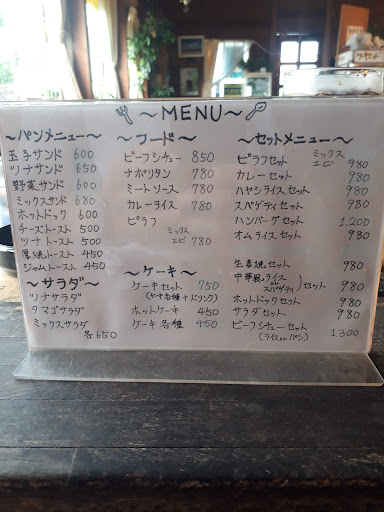 ~MENU~
~パンメニュー~
玉子サンド 600
ツナサンド 650
野菜サンド 600
ミックスサンド 680
ホットドック 600
チーズトースト 500
ツナトースト 500
厚焼トースト 450
ジャムトースト 450
~サラダ~
ツナサラダ
タマゴサラダ
ミックスサラダ
各650
~フード~
ビーフシチュー 850
ナポリタン 780
ミートソース 780
カレーライス 780
ピラフ
ミックス
エビ 780
~ケーキ~
ケーキセット 750
(ケーキ各種+ドリンク)
ホットケーキ 450
ケーキ各種 450
~セットメニュー~
ピラフセット ミックス
エビ 980
カレーセット 980
ハヤシライスセット 980
スパゲティセット 980
ハンバーグセット 1,200
オムライスセット 980
生姜焼セット 980
中華風ライス
or
スパゲティ
セット 980
ホットドックセット 980
サラダセット 980
ビーフシチューセット 1,300
(ライスorパン)